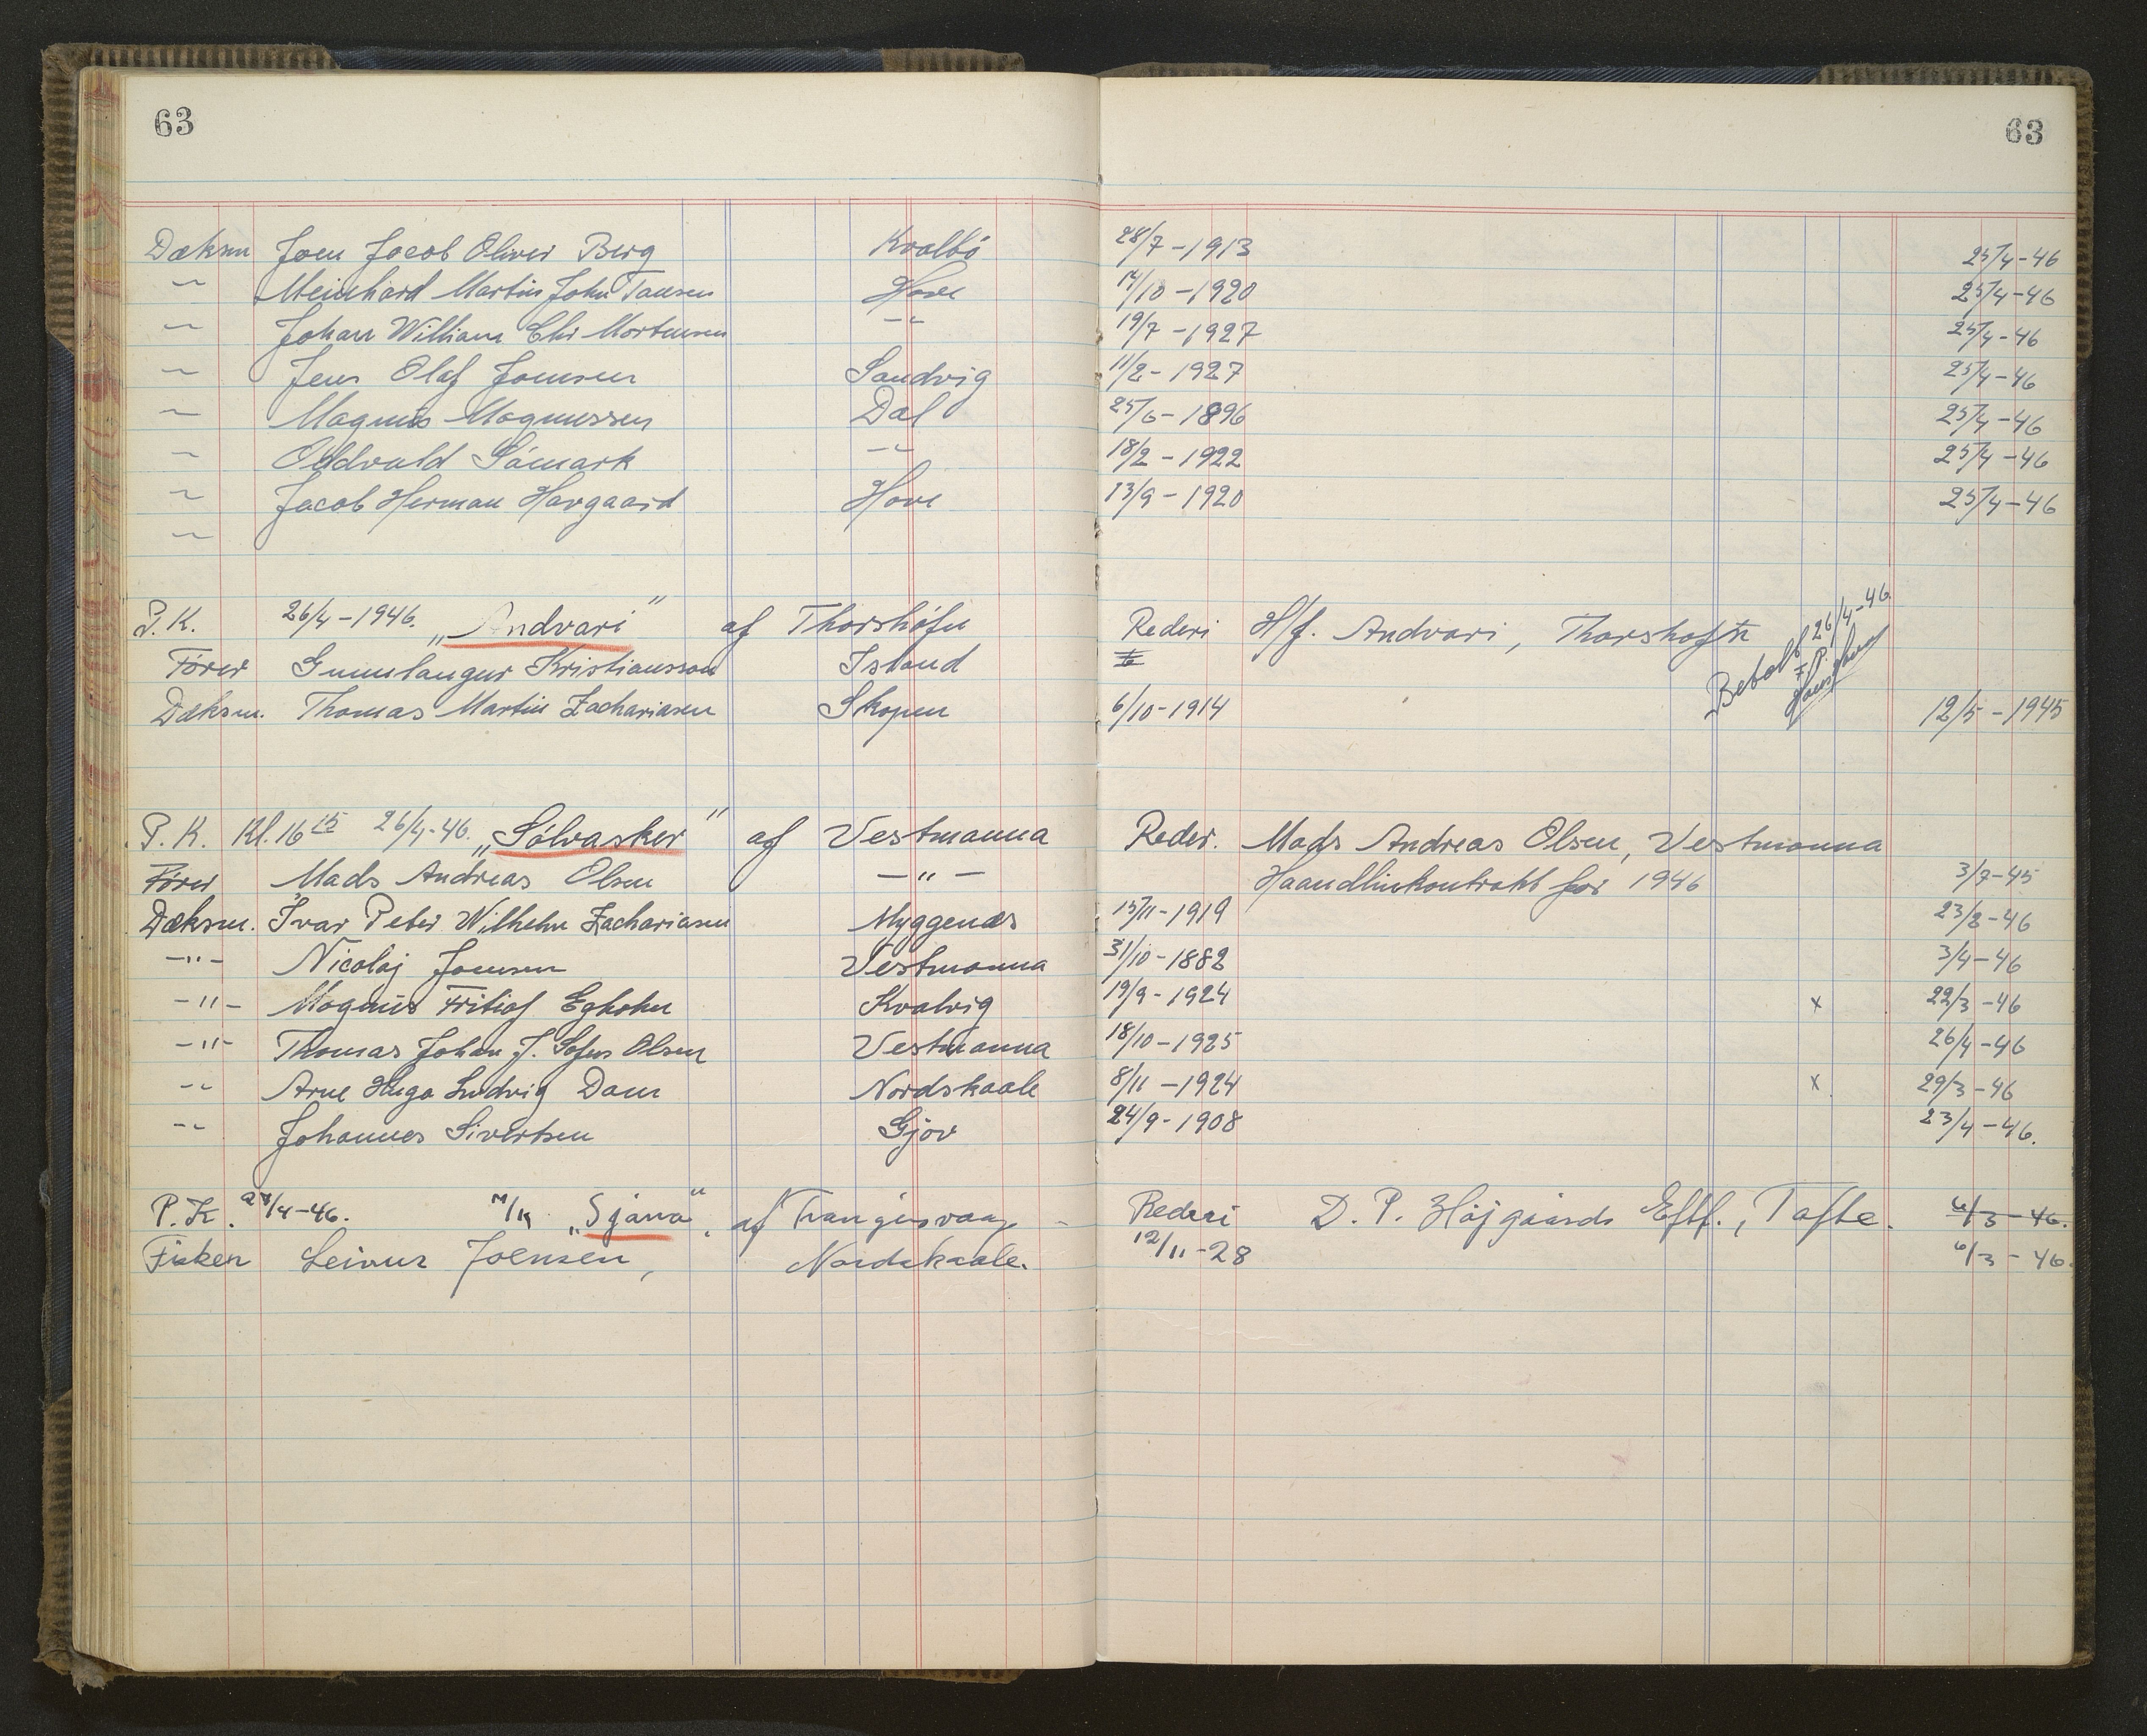 63 63
Dæksm Joen Jacob Oliver Berg Kvalbö 28/7 - 1913 25/4 - 46
-"- Meinhard Martin John Tausen Hove 14/10 - 1920 25/4 - 46
-"- Johan William Chr Mortensen -"- 19/7 - 1927 25/4 - 46
-"- Jens Olaf Joensen Sandvig 11/2 - 1927 25/4 - 46
-"- Magnus Magnussen Dal 25/6 - 1896 25/4 - 46
-"- Oddvald Sámark -"- 18/2 - 1922 25/4 - 46
-"- Jacob Herman Havgaard Hove 13/9 - 1920 25/4 - 46
-"-
P.K. 26/4 - 1946. „Andvari" af Thorshöfn Rederi H/f. Andvari, Thorshofn Betalt 26/4-46
Förer Gunnlaugur Kristiansson Island
Dæksm. Thomas Martin Zachariasen Skopun 6/10 - 1914 12/5 - 1945
P.K. Kl. 16 15 26/4-46. „Sólvasker" af Vestmanna Reder. Mads Andreas Olsen, Vestmanna
Förer Mads Andreas Olsen -"- Haandlinkontrakt for 1946 3/7-45
Dæksm. Ivar Peter Wilhelm Zachariasen Myggenæs 15/11 - 1919 23/2 - 46
-"- Nicolaj Joensen Vestmanna 31/10 - 1882 3/4 - 46
-"- Magnus Fritiof Egholm Kvalvig 19/9 - 1924 x 22/3 - 46
-"- Thomas Johan J. Sofus Olsen Vestmanna 18/10 - 1925 26/4 - 46
-"- Arne Hugo Ludvig Dam Nordskaale 8/11 - 1924 x 29/3 - 46
-"- Johannes Sivertsen Gjov 24/9 - 1908 23/4 - 46.
P.K. 27/4-46. M/K „Sjana". af Trangisvaag - Rederi D. P. Højgaards Eftf., Tofte. 6/3 - 46.
Fisker Leivur Joensen, Nordskaale. 12/11 - 28 6/3 - 46.